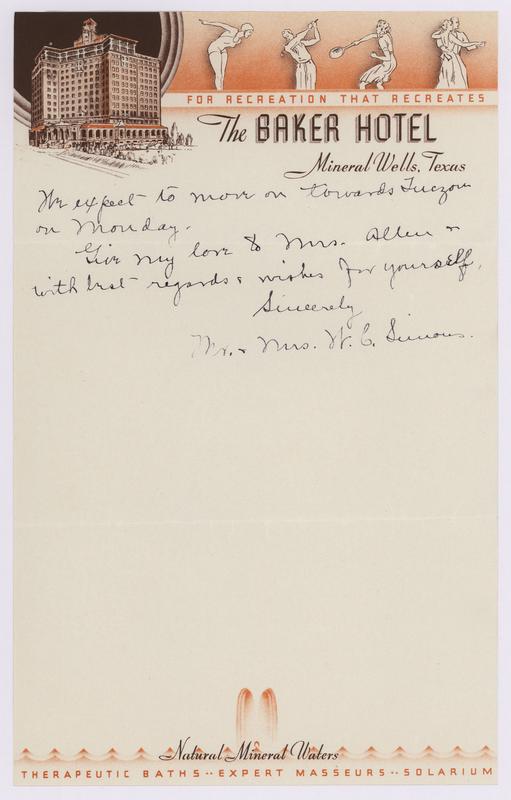 FOR RECREATION THAT RECREATES
The BAKER HOTEL
Mineral Wells, Texas
We expect to move on towards Tuczon
on Monday.
Give my love to Mrs. Allen &
with best regards & wishes for yourself,
Sincerely
Mr. & Mrs. W. C. Simons.
Natural Mineral Waters
THERAPEUTIC BATHS·· EXPERT MASSEURS·· SOLARIUM